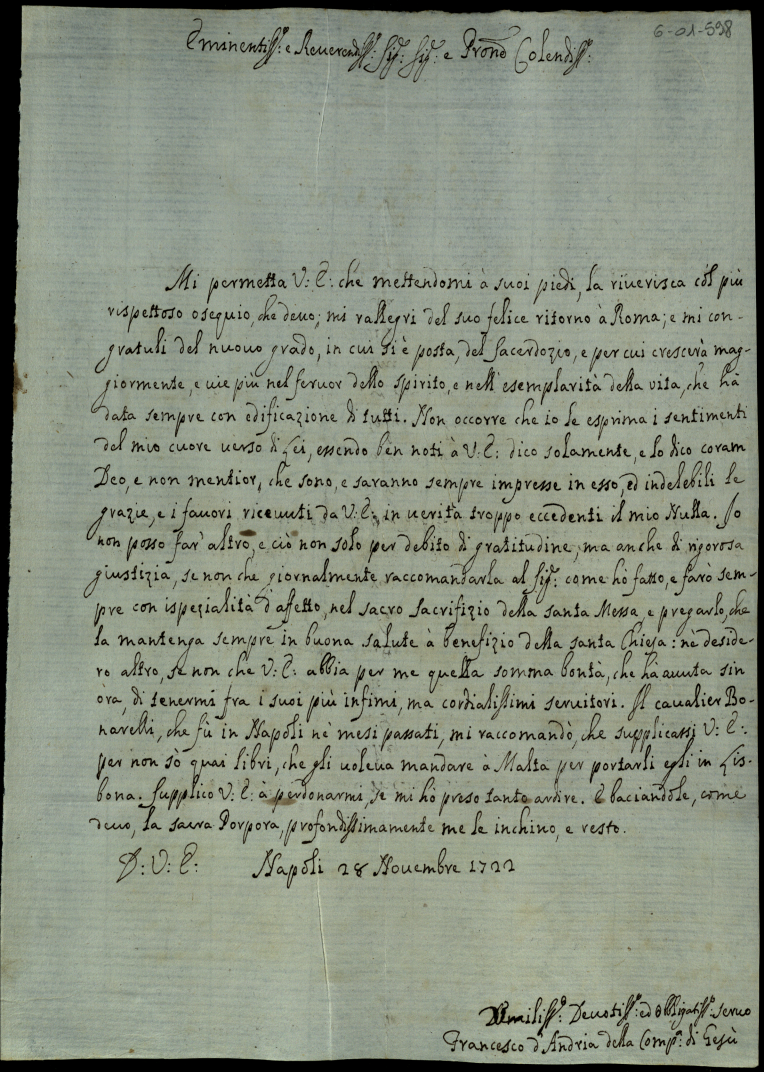 6-01-598
Eminentiss.º e Reverendiss.º Sig.r Sig.r e Pron̄e Colendiss.º
Mi permetta V: E: che mettendomi à suoi piedi, la riverisca col più
rispettoso osequio, che devo; mi rallegri del suo felice ritorno à Roma; e mi con-
gratuli del nuovo grado, in cui si è posta, del sacerdozio, e per cui crescerà mag-
giormente, e vie più nel fervor dello spirito, e nell'esemplarità della vita, che hà
data sempre con edificazione di tutti. Non occorre che io le esprima i sentimenti
del mio cuore verso di Lei, essendo ben noti à V: E: dico solamente, e lo dico coram
Deo, e non mentior, che sono, e saranno sempre impresse in esso, ed indelebili le
grazie, e i favori ricevuti da V: E:, in verità troppo eccedenti il mio Nulla. Io
non posso far' altro, e ciò non solo per debito di gratitudine, ma anche di rigorosa
giustizia, se non che giornalmente raccomandarla al Sig.r come hò fatto, e farò sem-
pre con ispezialità d'affetto, nel sacro sacrifizio della santa Messa, e pregarlo, che
la mantenga sempre in buona salute à benefizio della santa Chiesa: nè deside-
ro altro, se non che V: E: abbia per me quella somma bontà, che hà avuta sin
òra, di tenermi fra i suoi più infimi, ma cordialissimi servitori. Il cavalier Bo-
narelli, che fù in Napoli nè mesi passati, mi raccomandò, che supplicassi V: E:
per non sò quai libri, che gli voleva mandare à Malta per portarli egli in Lis-
bona. Supplico V: E: à perdonarmi, se mi hò preso tanto ardire. E baciandole, come
devo, la sacra Porpora, profondissimamente me le inchino, e resto.
D: V: E: Napoli 28 Novembre 1722
Umiliss.º Devotiss.º ed Obligatiss.º servo
Francesco d'Andria della Comp.a di Gesù